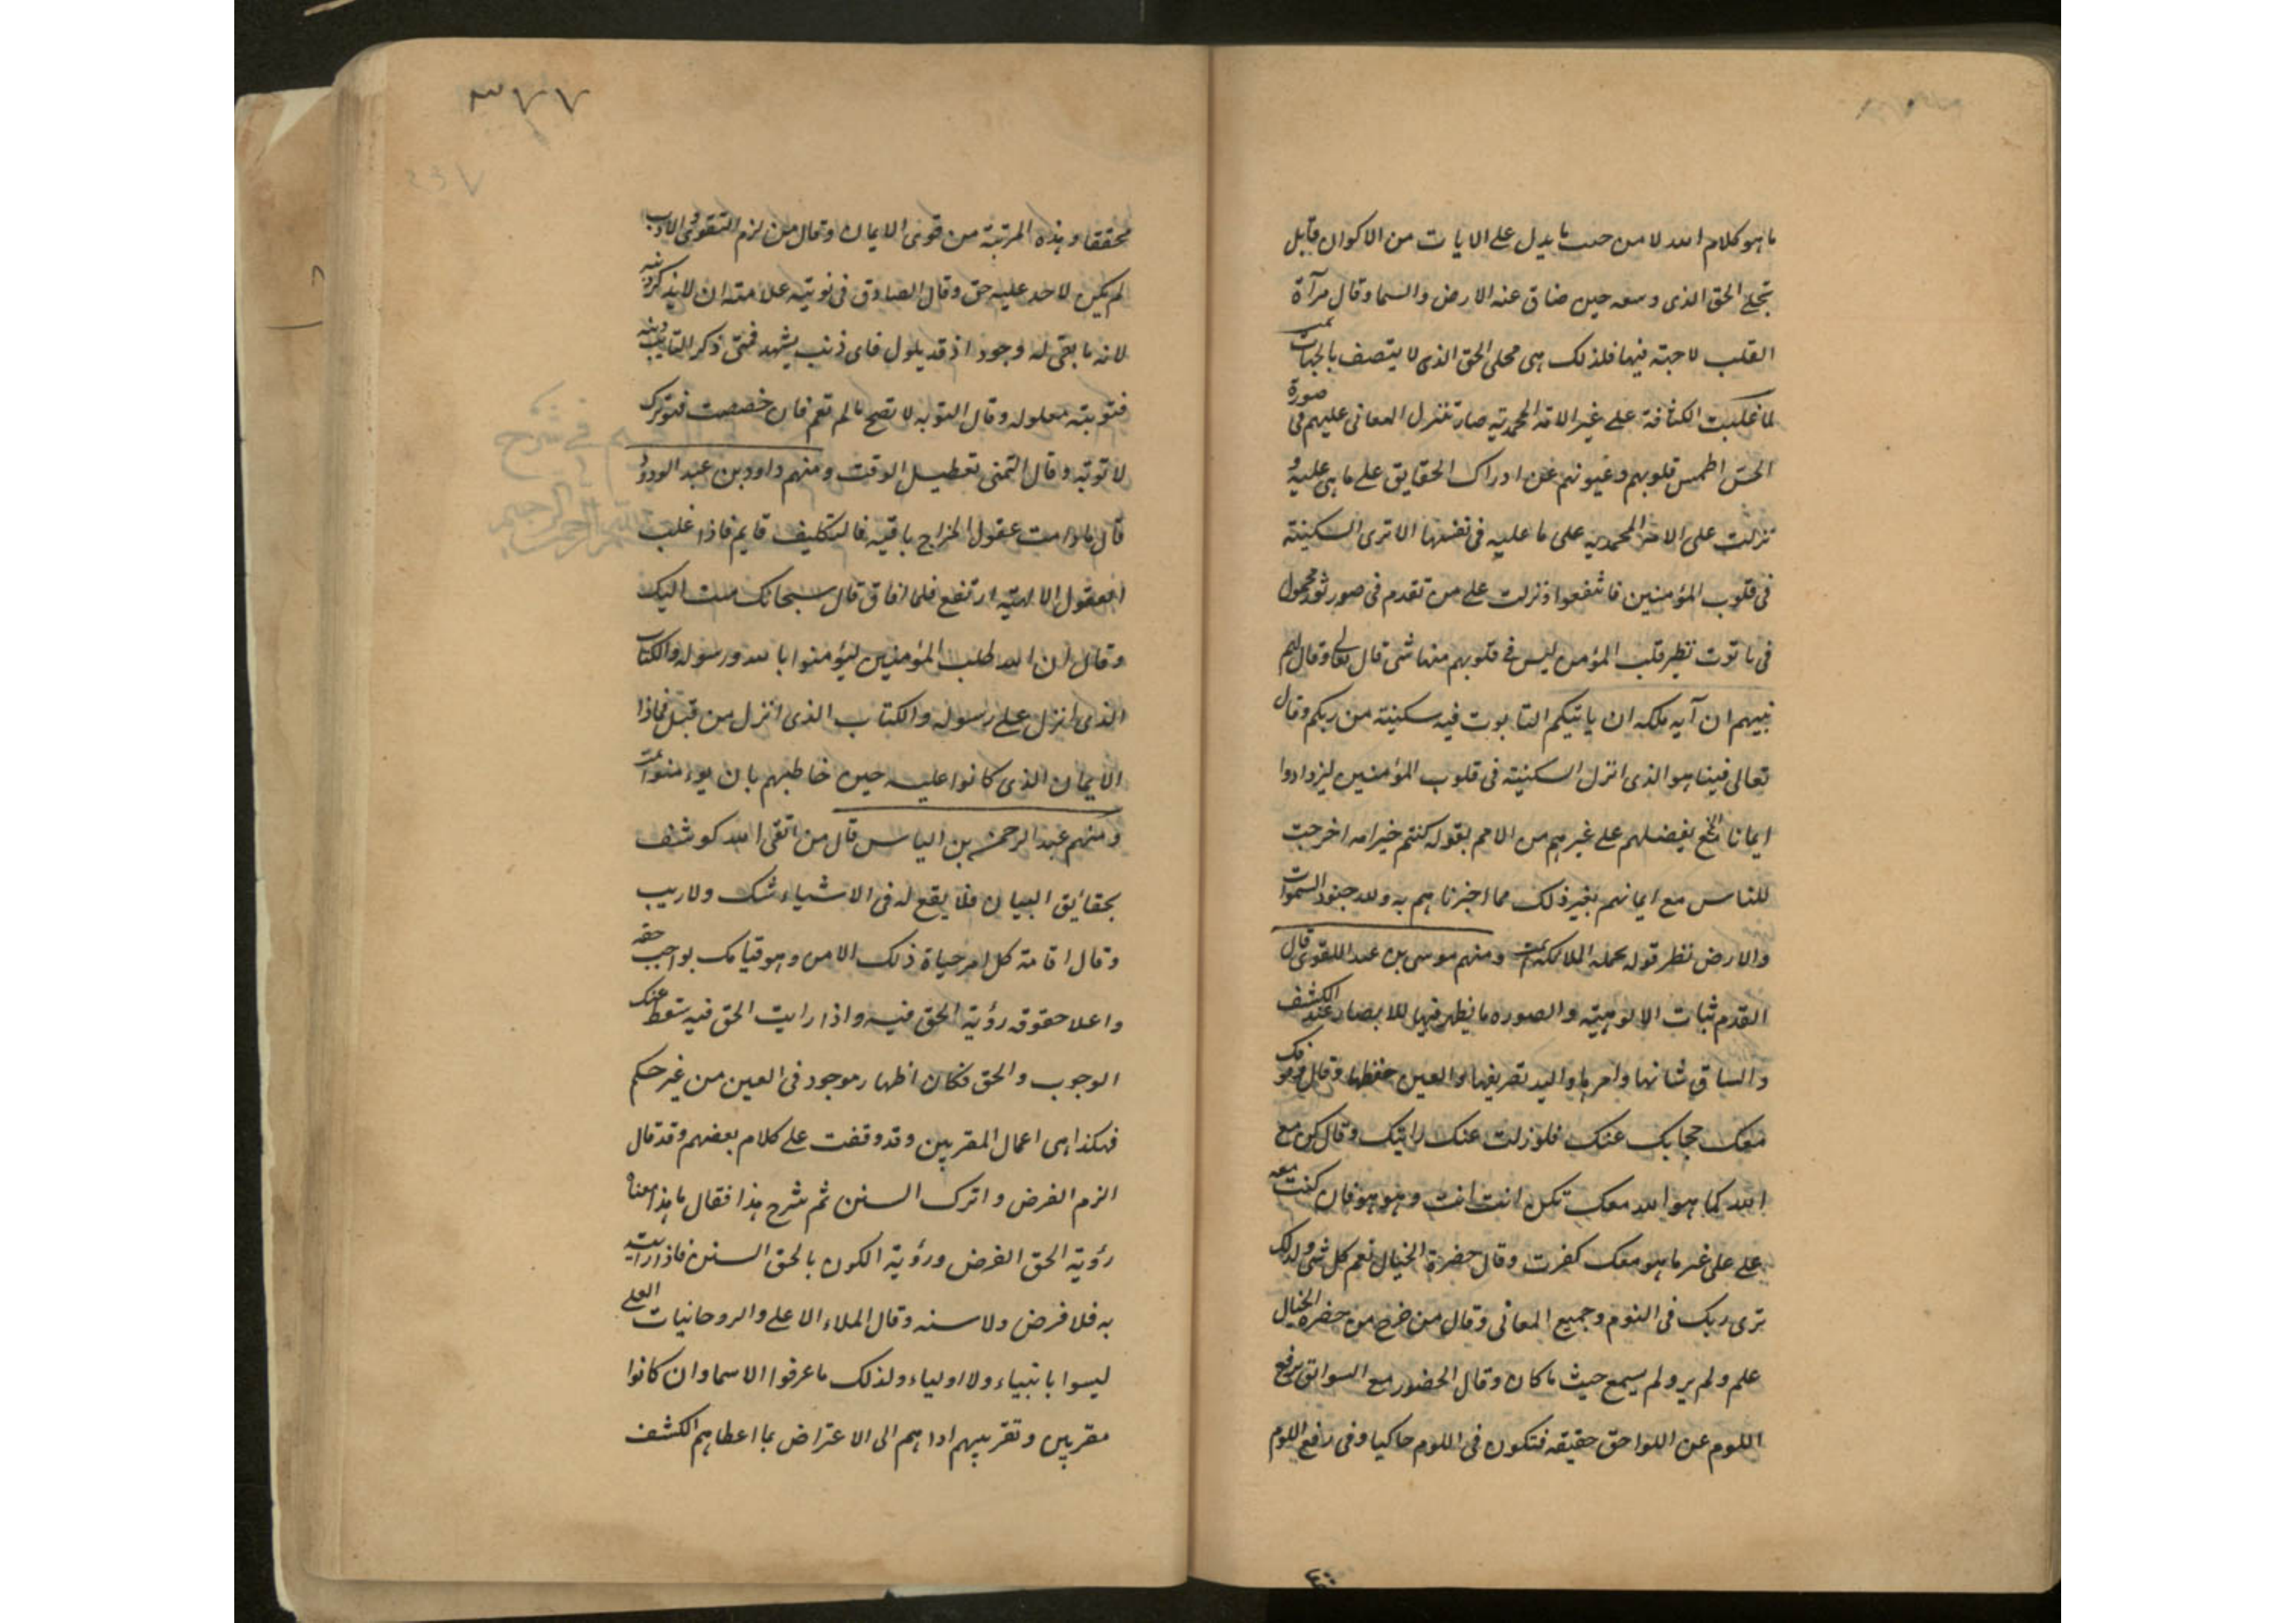 ما هو كلام الله لا من حيث ما يدل على الايات من الاكوان قابل
تجلى الحق الذى وسعه حين ضاق عنه الارض والسما وقال مرآة
القلب لا جهة فيها فلذلك هى مجلى الحق الذى لا يتصف بالجهات
لما غلبت الكثافة على غير الامة المحمدية صارت تنزل المعانى عليهم فى صورة
الحس اطمس قلوبهم وعيونهم عن ادراك الحقايق على ما هى عليه و
نزلت على الامة المحمديه على ما عليه فى نفسها الا ترى السكينة
فى قلوب المؤمنين فانتفعوا ونزلت على من تقدم فى صور محمول
فى تابوت نظير قلب المؤمن ليس فى قلوبهم منها شى قال تعالى وقال لهم
نبيهم ان آية ملكه ان ياتيكم التابوت فيه سكينة من ربكم وقال
تعالى فينا هو الذى انزل السكينة فى قلوب المؤمنين ليزدادوا
ايمانا الخ بفضلهم على غيرهم من الامم بقوله كنتم خير امه اخرجت
للناس مع ايمانهم بغير ذلك مما اخبرنا هم به ولله جنود السموات
والارض نظير قوله تحمله الملائكة ومنهم موسى بن عبد القوى قال
القدم ثبات الالوهية والصوره ما يظهر فيها للابصار عند الكشف
والساق شانها وامرها واليد تصريفها والعين حفظها وقال
معك حجابك عنك فلو زلت عنك رايتك وقال كن مع
الله كما هو الله معك تكن انت انت وهو هو فان كنت معه
على غير ما هو معك كفرت وقال حضرة الخيال تعم كل شى ولذلك
ترى ربك فى النوم وجميع المعانى وقال من خرج من حضرة الخيال
علم ولم ير ولم يسمع حيث ما كان وقال الحضور مع السوابق يرفع
اللوم عن اللواحق حقيقه فتكون فى اللوم حاكيا وفى رفع اللوم
٣٧٧
محققا وهذه المرتبة من قوى الايمان وقال من لزم التقوى والادب
لم يكن لاحد عليه حق وقال الصادق فى توبته علامته ان لا يذكر ذنبه
لانه ما بقى له وجود اذ قد فاى ذنب يشهد فمتى ذكر التايب ذنبه
فتوبته معلوله وقال التوبه لا تصح ما لم تعم فان خصصت فتترك
لا توبه وقال التمنى تعطيل الوقت ومنهم داود بن عبد الودود
قال ما دامت عقول المزاج باقيه فالتكليف قايم فاذا غلب
العقول الالهية ارتفع فلما افاق قال سبحانك تبت اليك
وقال ان الله طلب المؤمنين ليؤمنوا بالله ورسوله والكتاب
الذى انزل على رسوله والكتاب الذى انزل من قبل فماذا
الايمان الذى كانوا عليه حين خاطبهم بان يومنوا
ومنهم عبد الرحمن بن الياس قال من اتقى الله كوشف
بحقائق البيان فلا يقع له فى الاشياء شك ولا ريب
وقال اقامة كل امر حياة ذلك الامر وهو قيامك بواجب حقه
واعلا حقوقه رؤية الحق فيه واذا رايت الحق فيه سقط عنك
الوجوب والحق فكان اظهار موجود فى العين من غير حكم
فهكذا هى اعمال المقربين وقد وقفت على كلام بعضهم وقد قال
الزم الفرض واترك السنن ثم شرح هذا فقال ما هذا معناه
رؤية الحق الفرض ورؤية الكون بالحق السنن فاذا رايته
به فلا فرض ولا سنه وقال الملاء الاعلى والروحانيات العلى
ليسوا بانبياء ولا اولياء ولذلك ما عرفوا الاسما وان كانوا
مقربين وتقريبهم اداهم الى الاعتراض بما اعطاهم الكشف